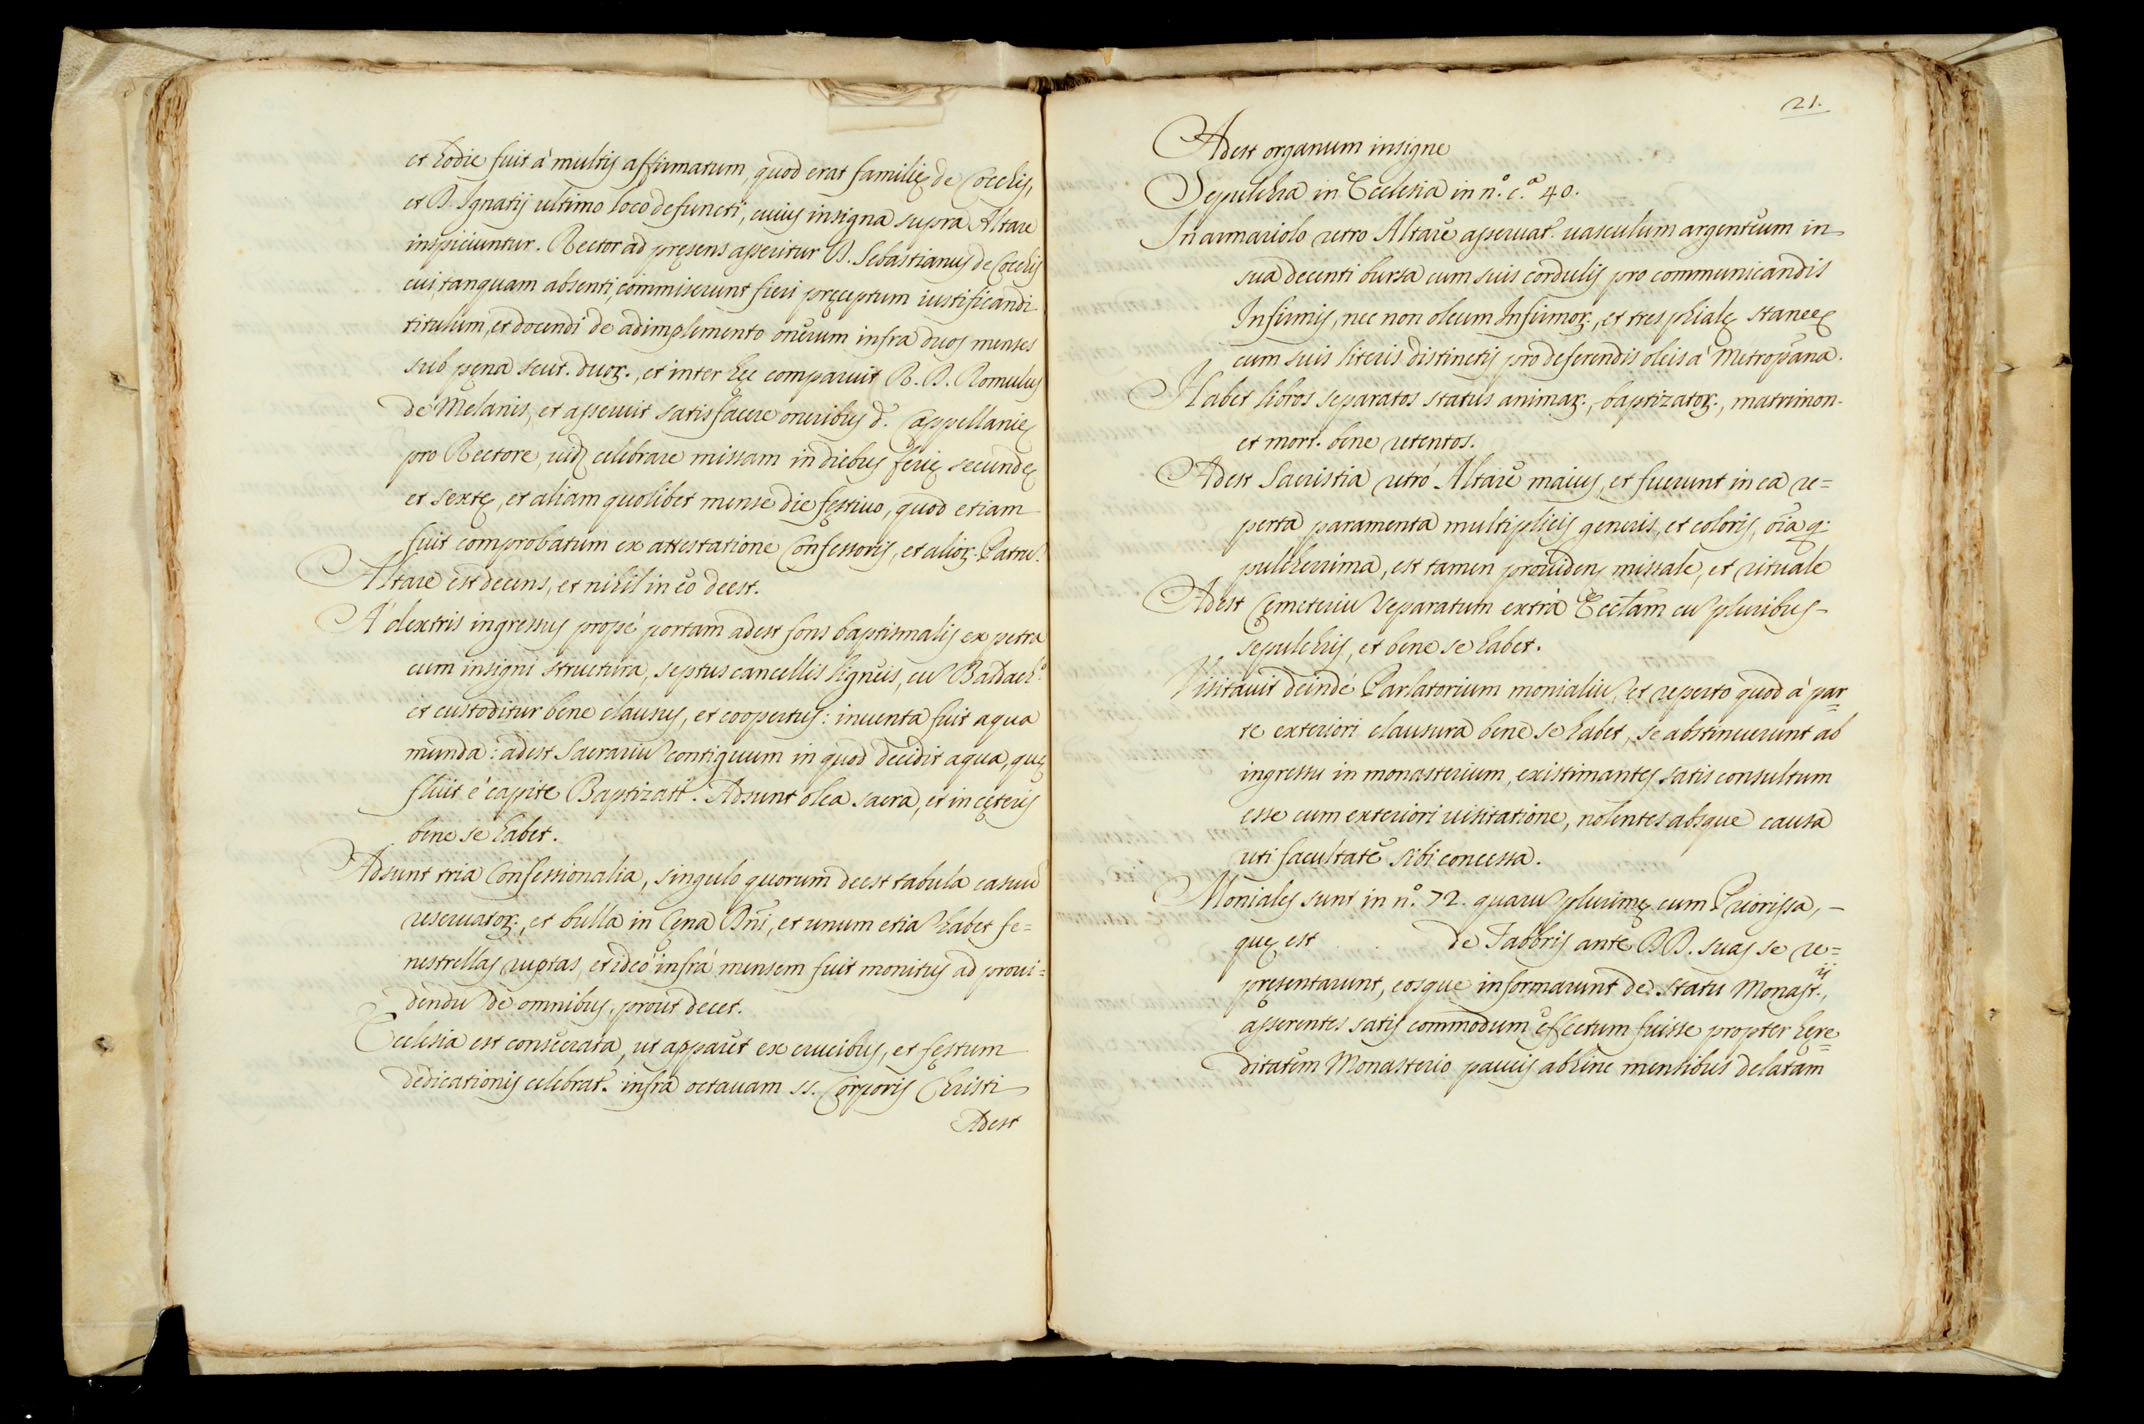 et hodie fuit à multis affirmatum, quod erat familię de Cocchis,
et D. Ignatij ultimo loco defuncti, cuius insigna supra Altare
inspiciuntur. Rector ad pręsens asseritur D. Sebastianus de Cocchis
cui, tanquam absenti, commiserunt fieri pręceptum iustificandi
titulum, et docendi de adimplemento onerum infra duos menses
sub pęna scut. duor., et inter hęc comparuit R. D. Romulus
de Melanis, et asseruit satisfacere oneribus d. Cappellanię
pro Rectore, uidz celebrare missam in diebus ferię secundę
et sextę, et aliam quolibet mense die fęstiuo, quod etiam
fuit comprobatum ex attestatione Confessoris, et alior.
Altare est decens, et nihil in eo deest.
A' dextris ingressus propè portam adest fons baptismalis ex petra
cum insigni structura, septus cancellis ligneis, cu Baldach.º
et custoditur bene clausus, et coopertus: inuenta fuit aqua
munda: adest Sacrariu contiguum in quod decidit aqua, quę
fluit è capite Baptizati. Adsunt olea sacra, et in cęteris
bene se habet.
Adsunt tria Confessionalia, singulo quorum deest tabula casuu
reseruator., et bulla in Cęna Dñi, et unum etia habet fe=
nestrellas ruptas, et ideò infrà mensem fuit monitus ad proui=
dendu de omnibus, prout decet.
Ecclesia est consecrata, ut apparet ex crucibus, et fęstum
dedicationis celebrat. infra octauam ss. Corporis Christi
Adest
21.
Adest organum insigne
Sepulchra in Ecclesia in n.º c.ª 40.
In armariolo retro Altare asseruat. uasculum argenteum in
sua decenti bursa cum suis cordulis pro communicandis
Infirmis, nec non oleum Infirmor., et tres phialę stanneę
cum suis literis distinctis pro deferendis oleis à Metropãna.
Habet libros separatos status animar., baptizator., matrimon.
et mort. bene retentos.
Adest Sacristia retrò Altare maius, et fuerunt in ea re=
perta paramenta multiplicis generis, et coloris, oĩa q.
pulcherrima, est tamen prouidens missale, et rituale
Adest Cęmeteriu separatum extrà Eccl̃am cu pluribus
sepulchris, et bene se habet.
Visitauit deindè Parlatorium monialiu, et reperto quod à par=
te exteriori clausura bene se habet, se abstinuerunt ab
ingressu in monasterium, existimantes satis consultum
esse cum exteriori uisitatione, nolentes absque causa
uti facultate sibi concessa.
Moniales sunt in n.º 72. quaru plurimę cum Priorissa,
quę est de Fabbris ante DD. suas se re=
pręsentarunt, eosque informarunt de statu Monast.rij,
asserentes satis commodum effectum fuisse propter hęre=
ditatem Monasterio paucis abhinc mensibus delatam